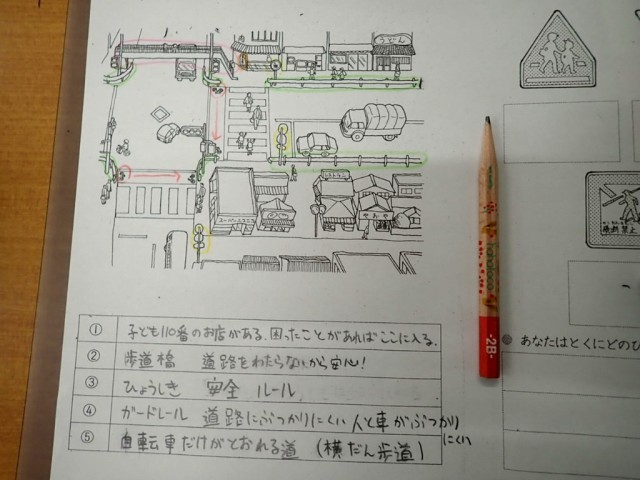 うどん
横断禁止
2B
① 子ども110番のお店がある。困ったことがあればここに入る。
② 歩道橋 道路をわたらないから安心!
③ ひょうしき 安全 ルール
④ ガードレール 道路にぶつかりにくい 人と車がぶつかり
にくい
⑤ 自転車だけがとおれる道 (横だん歩道)
● あなたはとくにどのひ